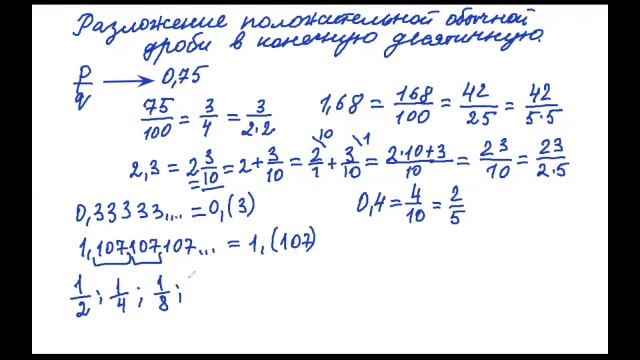 Разложение положительной обычной
дроби в конечную десятичную.
p/q → 0,75
75/100 = 3/4 = 3/2·2
1,68 = 168/100 = 42/25 = 42/5·5
2,3 = 2 3/10 = 2 + 3/10 = 2/1 \10 + 3/10 \1 = 2·10+3/10 = 23/10 = 23/2·5
0,33333.... = 0,(3)
0,4 = 4/10 = 2/5
1,107107107... = 1,(107)
1/2 ; 1/4 ; 1/8 ;